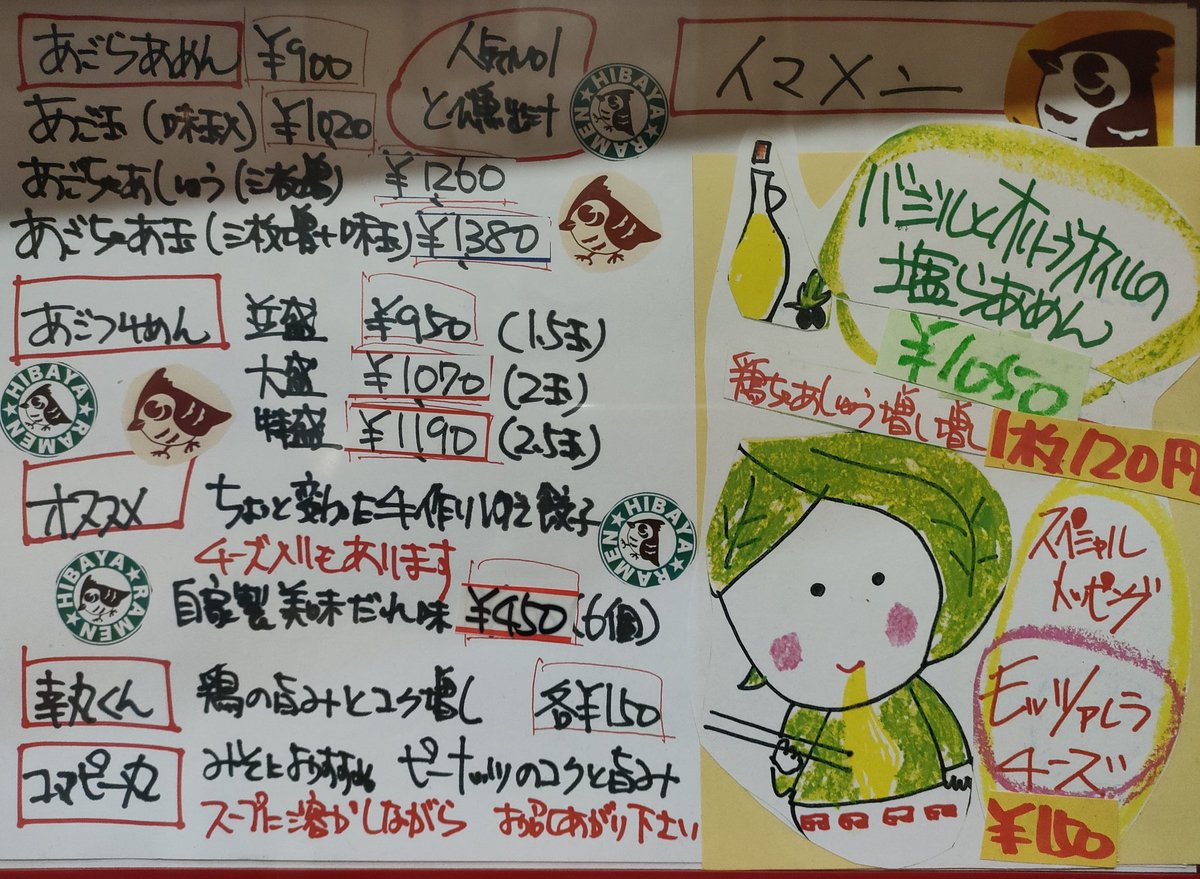 あごらあめん ¥900
人気No1
とび魚出汁
あご玉(味玉入) ¥1020
あごちゃあしゅう(三枚増) ¥1260
あごちゃあ玉(三枚増+味玉) ¥1380
HIBAYA RAMEN
あごつけめん 並盛 ¥950 (1.5玉)
大盛 ¥1070 (2玉)
特盛 ¥1190 (2.5玉)
HIBAYA RAMEN
オススメ ちょっと変わった手作り 餃子
チーズ入りもあります
HIBAYA RAMEN
自家製美味だれ味 ¥450 (6個)
HIBAYA RAMEN
幸丸くん 鶏の旨みとコク増し 各¥150
コマピー丸 みそにおすすめ ピーナッツのコクと旨み
スープに溶かしながら お召しあがり下さい
イマメン
バジルとオリーブオイルの
塩らあめん
¥1050
鶏ちゃあしゅう増し増し
1枚120円
スペシャル
トッピング
モッツァレラ
チーズ
¥150